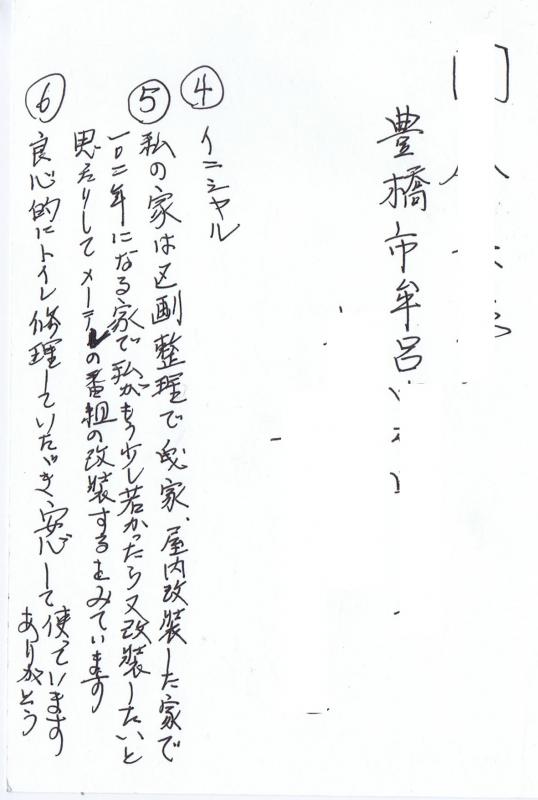 豊橋市牟呂
④ イニシャル
⑤ 私の家は区画整理で曳家、屋内改装した家で
一〇二年になる家で私がもう少し若かったら又改装したいと
思ったりしてメーテレの番組の改装するをみています
⑥ 良心的にトイレ修理していただき、安心して使っています
ありがとう